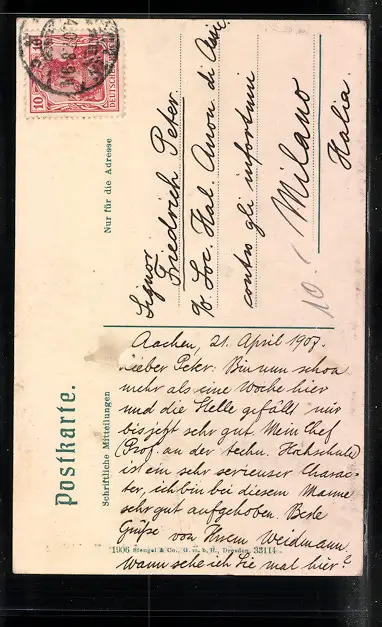 Postkarte.
Nur für die Adresse
Schriftliche Mitteilungen
10 10
DEUTSCHES
Signor
Friedrich Peter
Soc. Ital. Anon di Assic.
contro gli infortuni
Milano
Italia.
10.
Aachen, 21. April 1907.
Lieber Peter: Bin nun schon
mehr als eine Woche hier
und die Stelle gefällt mir
bis jetzt sehr gut. Mein Chef
(Prof. an der techn. Hochschule)
ist ein sehr serieuser Charac-
ter, ich bin bei diesem Manne
sehr gut aufgehoben. Beste
Grüße von Ihrem Weidmann.
Wann sehe ich Sie mal hier?
1906 Stengel & Co., G. m. b. H., Dresden 33114